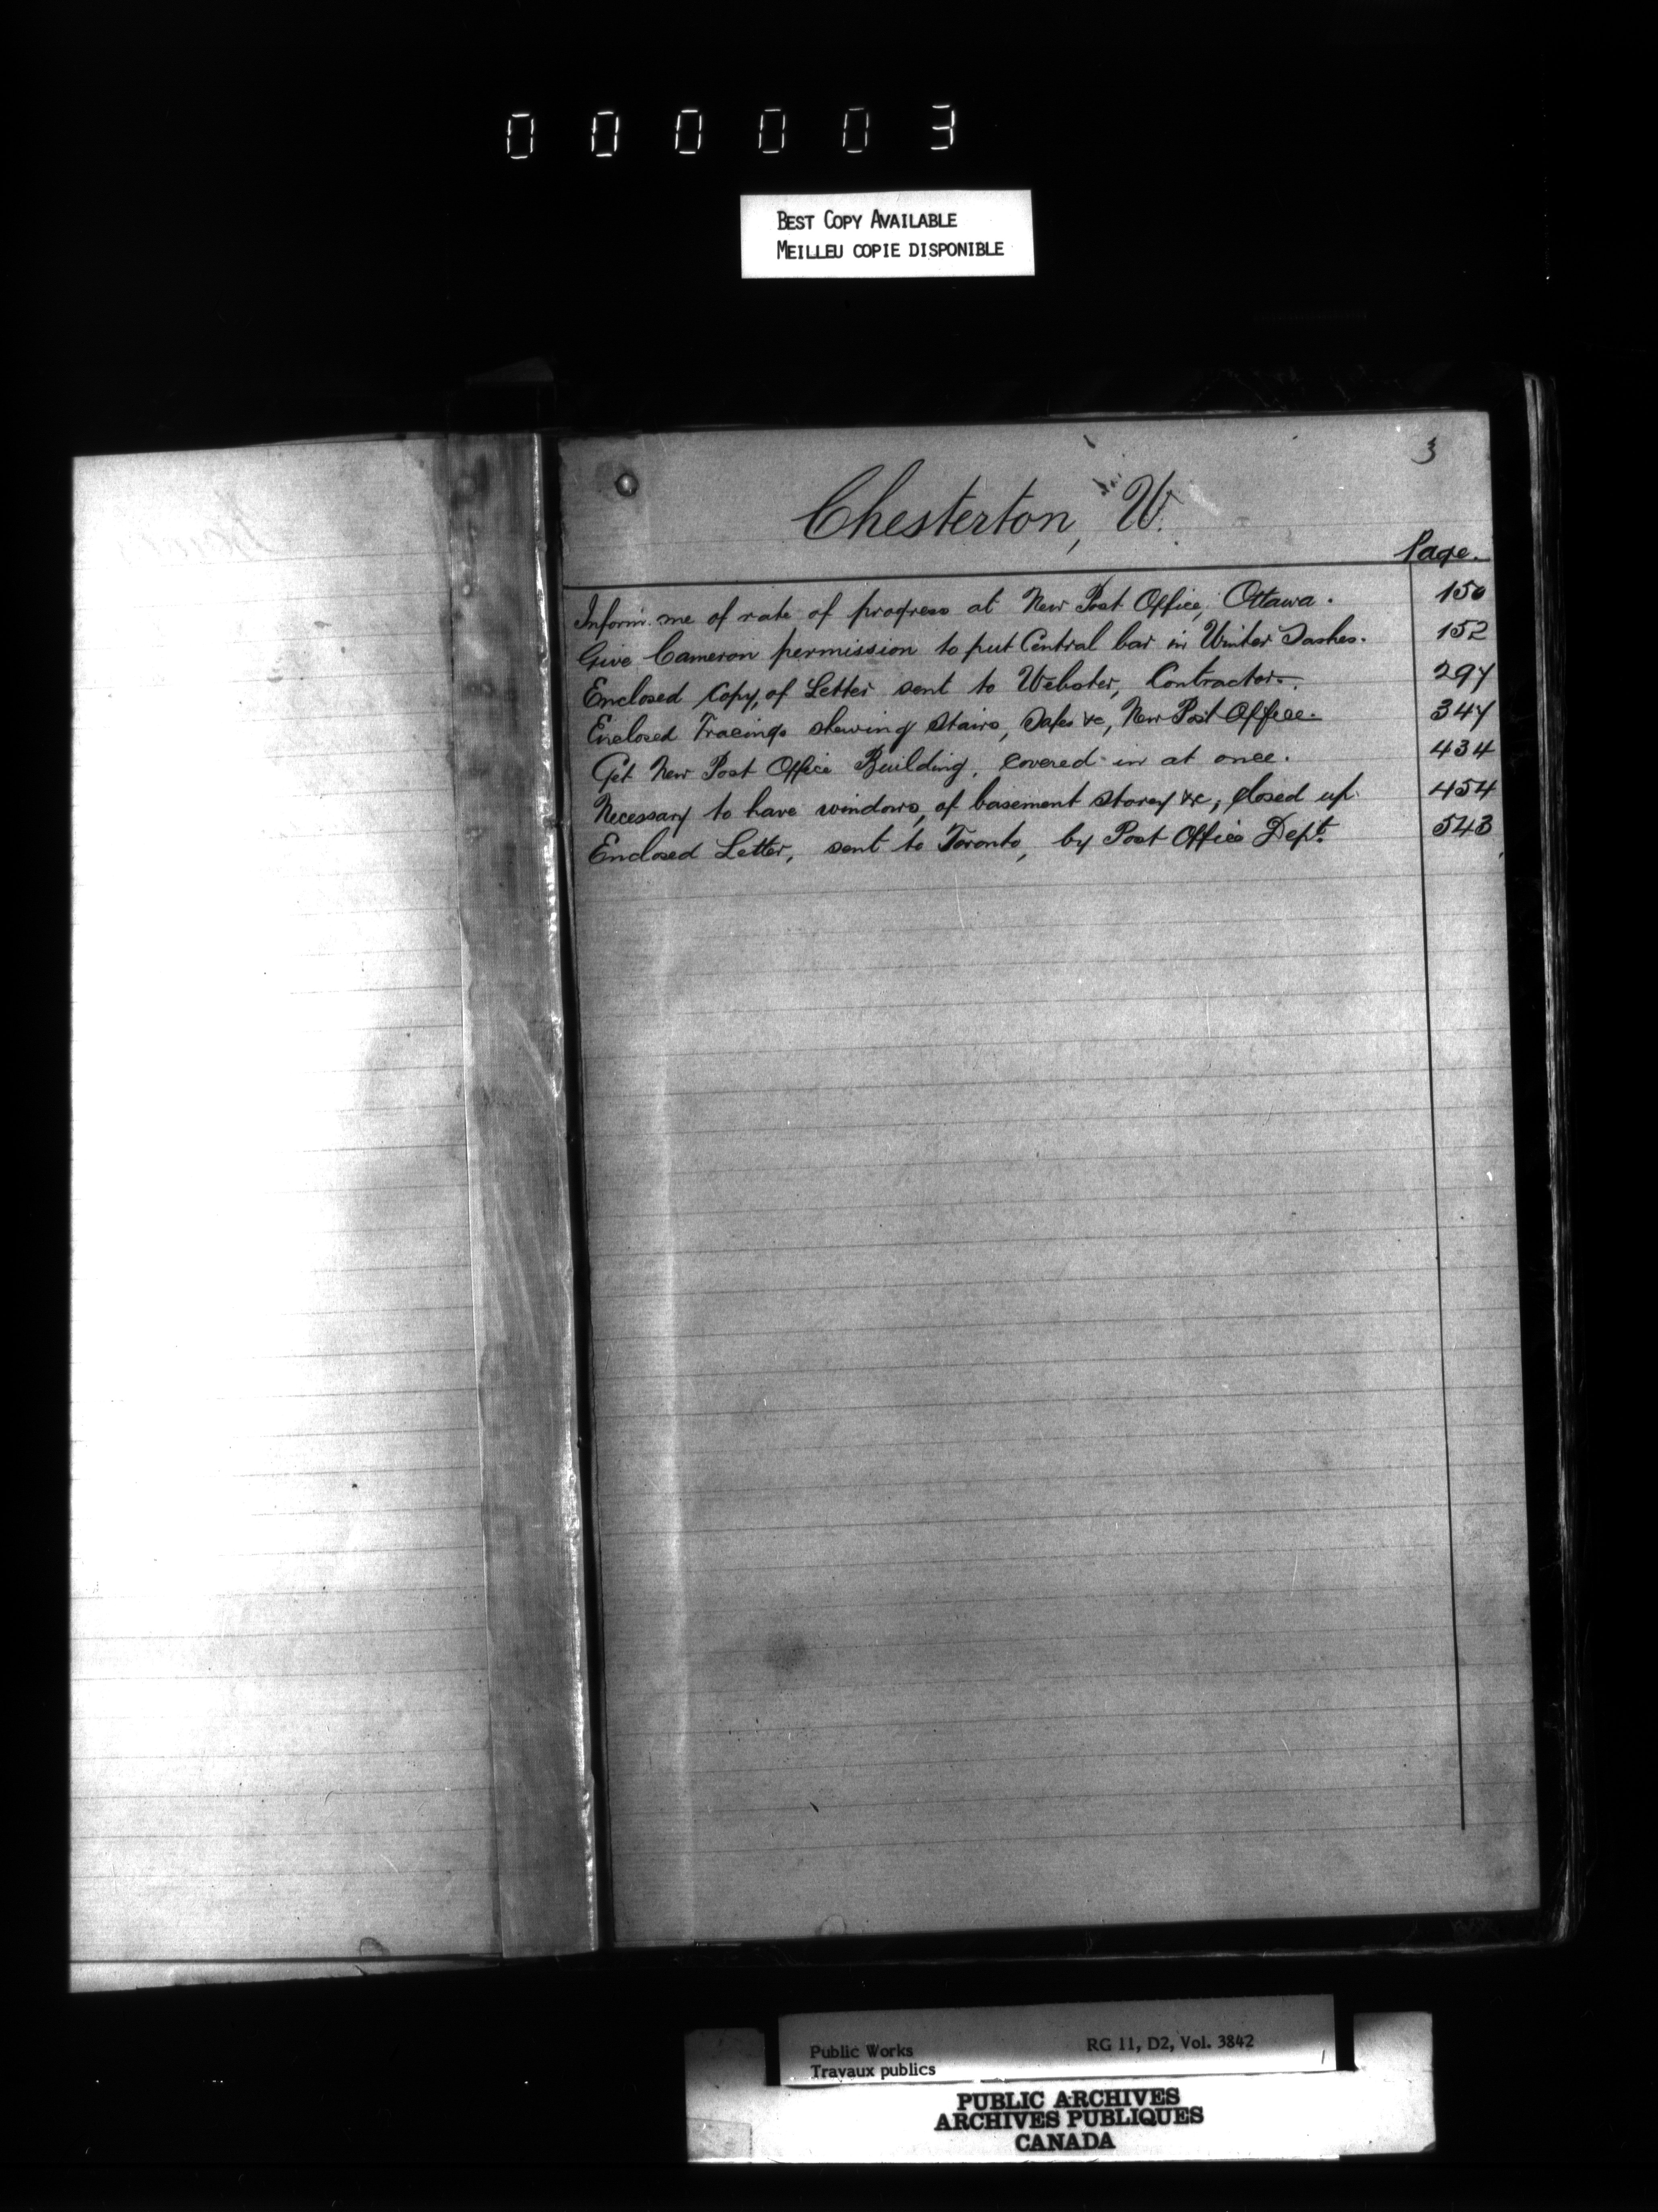 000003
BEST COPY AVAILABLE
MEILLEU COPIE DISPONIBLE
3
Chesterton, W.
Page.
Inform me of rate of progress at New Post Office, Ottawa. 150
Give Cameron permission to put Central bar in Winter Sashes. 152
Enclosed Copy, of Letter sent to Webster, Contractor. 297
Enclosed Tracings shewing Stairs, Safes &c, New Post Office. 347
Get New Post Office Building, covered in at once. 434
Necessary to have windows, of basement storey &c, closed up 454
Enclosed Letter, sent to Toronto, by Post Office Dept. 543
Public Works
Travaux publics
RG 11, D2, Vol. 3842
PUBLIC ARCHIVES
ARCHIVES PUBLIQUES
CANADA